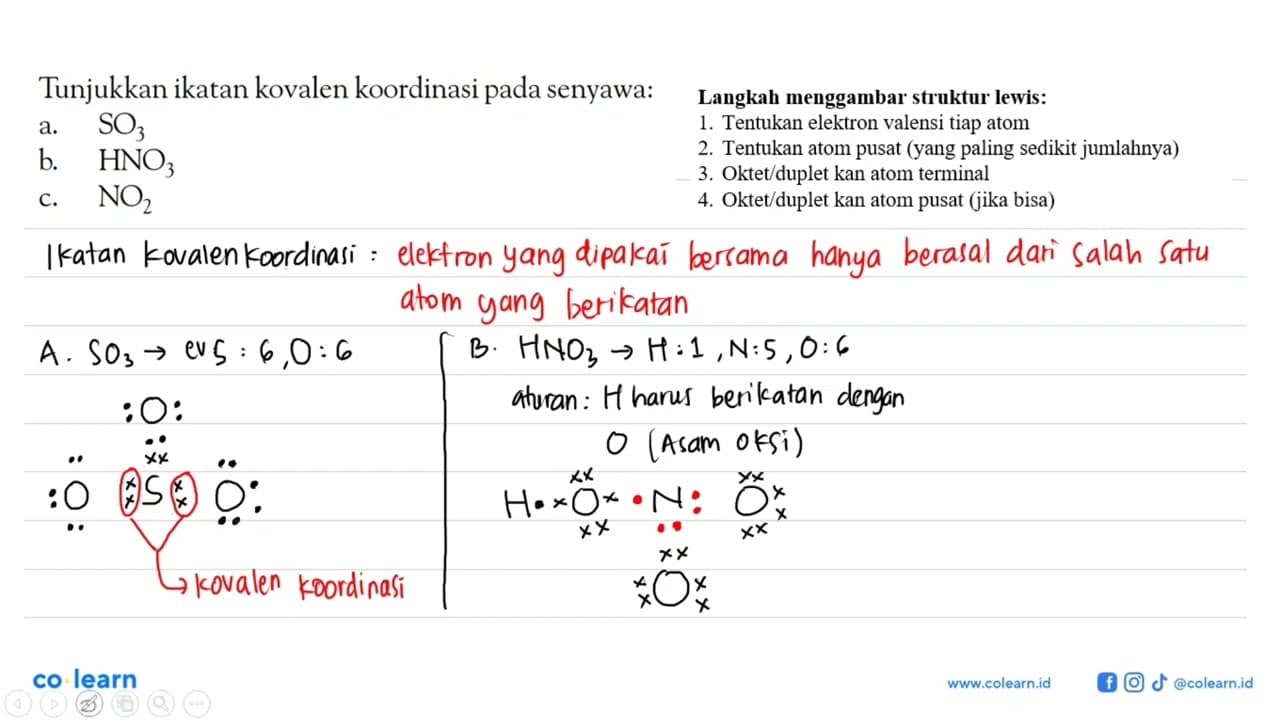 Tunjukkan ikatan kovalen koordinasi pada senyawa:
a. SO3
b. HNO3
c. NO2
Langkah menggambar struktur lewis:
1. Tentukan elektron valensi tiap atom
2. Tentukan atom pusat (yang paling sedikit jumlahnya)
3. Oktet/duplet kan atom terminal
4. Oktet/duplet kan atom pusat (jika bisa)
Ikatan kovalen koordinasi : elektron yang dipakai bersama hanya berasal dari salah satu
atom yang berikatan
A. SO3 → ev S : 6, O : 6
O
O S O
→ kovalen koordinasi
B. HNO3 → H : 1, N : 5, O : 6
aturan : H harus berikatan dengan
O (Asam oksi)
H O N O
O
co learn
www.colearn.id
@colearn.id